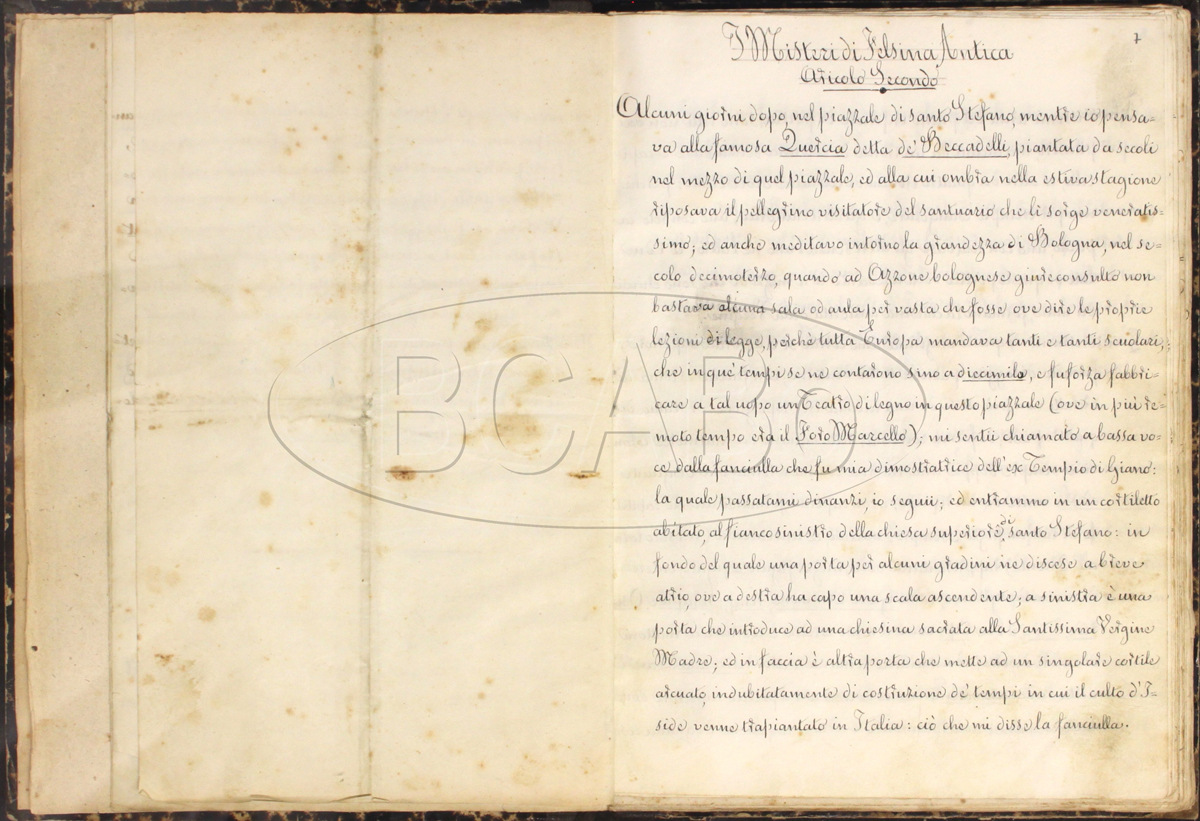 7
I Misteri di Felsina Antica
Articolo Secondo
Alcuni giorni dopo, nel piazzale di santo Stefano, mentre io pensa=
va alla famosa Quercia detta de' Beccadelli, piantata da secoli
nel mezzo di quel piazzale, ed alla cui ombra nella estiva stagione
riposava il pellegrino visitatore del santuario che lì sorge veneratis=
simo; ed anche meditavo intorno la grandezza di Bologna, nel se=
colo decimoterzo, quando ad Azzone bolognese giureconsulto non
bastava alcuna sala od aula per vasta che fosse ove dire le proprie
lezioni di legge, perchè tutta Europa mandava tanti e tanti scuolari,
che in que' tempi se ne contarono sino a diecimila, e fu forza fabbri=
care a tal uopo un Teatro di legno in questo piazzale (ove in più re=
moto tempo era il Foro Marcello); mi sentii chiamato a bassa vo=
ce dalla fanciulla che fu mia dimostratrice dell'ex Tempio di Giano:
la quale passatami dinanzi, io seguii; ed entrammo in un cortiletto
abitato, al fianco sinistro della chiesa superiore di santo Stefano: in
fondo del quale una porta per alcuni gradini ne discese a breve
atrio, ove a destra ha capo una scala ascendente; a sinistra è una
porta che introduce ad una chiesina sacrata alla Santissima Vergine
Madre; ed in faccia è altra porta che mette ad un singolare cortile
arcuato, indubitatamente di costruzione de' tempi in cui il culto d'I=
side venne trapiantato in Italia: ciò che mi disse la fanciulla.
BCABo